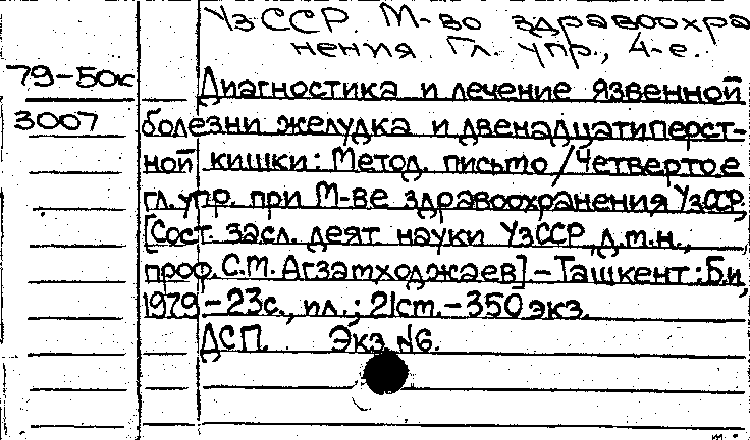 УзССР. М-во здравоохра
нения. Гл. упр., 4-е.
79-50к
Диагностика и лечение язвенной
3007
болезни желудка и двенадцатиперст-
ной кишки: Метод. письмо / Четвертое
гл. упр. при М-ве здравоохранения УзССР,
[Сост. засл. деят. науки УзССР, д.м.н.,
проф. С.М. Агзамходжаев]. - Ташкент: Б.и,
1979 - 23с., ил.; 21см. - 350 экз.
ДСП. Экз. №6.